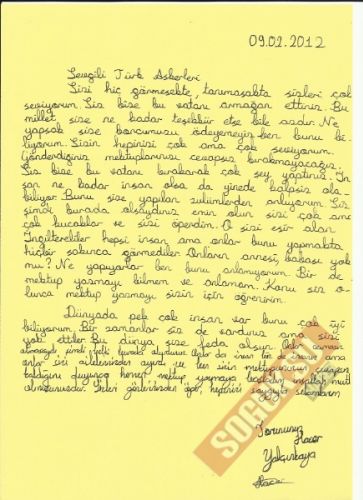 09.02.2012
Sevgili Türk Askerleri
Sizi hiç görmesekte, tanımasakta sizleri çok
seviyorum. Siz bize bu vatanı armağan ettiniz. Bu
millet size ne kadar teşekkür etse bile azdır. Ne
yapsak size borcumuzu ödeyemeyiz ben bunu bi-
liyorum. Sizin hepinizi çok ama çok seviyorum.
Gönderdiğiniz mektuplarınızı cevapsız bırakmayacağız.
Siz bize bu vatanı bırakarak çok şey yaptınız. İn
san ne kadar insan olsa da yinede kalpsiz ola-
biliyor. Bunu size yapılan zulümlerden anlıyorum. Siz
şimdi burada olsaydınız emin olun sizi çok ama
çok kucaklar ve sizi öperdim. O sizi esir alan
İngilizler hepsi insan ama onlar bunu yapmakta
hiçbir sakınca görmediler. Onların annesi, babası yok
mu? Ne yapıyorlar ben bunu anlamıyorum. Bir de
mektup yazmayı bilmem ve anlamam. Konu siz o-
lunca mektup yazmayı sizin için öğrenirim.
Dünyada pek çok insan var bunu çok iyi
biliyorum. Bir zamanlar siz de vardınız ama sizi
yok ettiler. Bu dünya size feda olsun.
olmasaydı, şimdi belki burada olurdunuz. Onlar da insan siz de insan ama
onlar sizi ailelerinizden ayırdı
duyunca hemen mektup yazmaya başladım
gözlerinizden öper, hepinizi saygıyla selamlarım.
Torununuz
Hacer
Yalçınkaya
Hacer